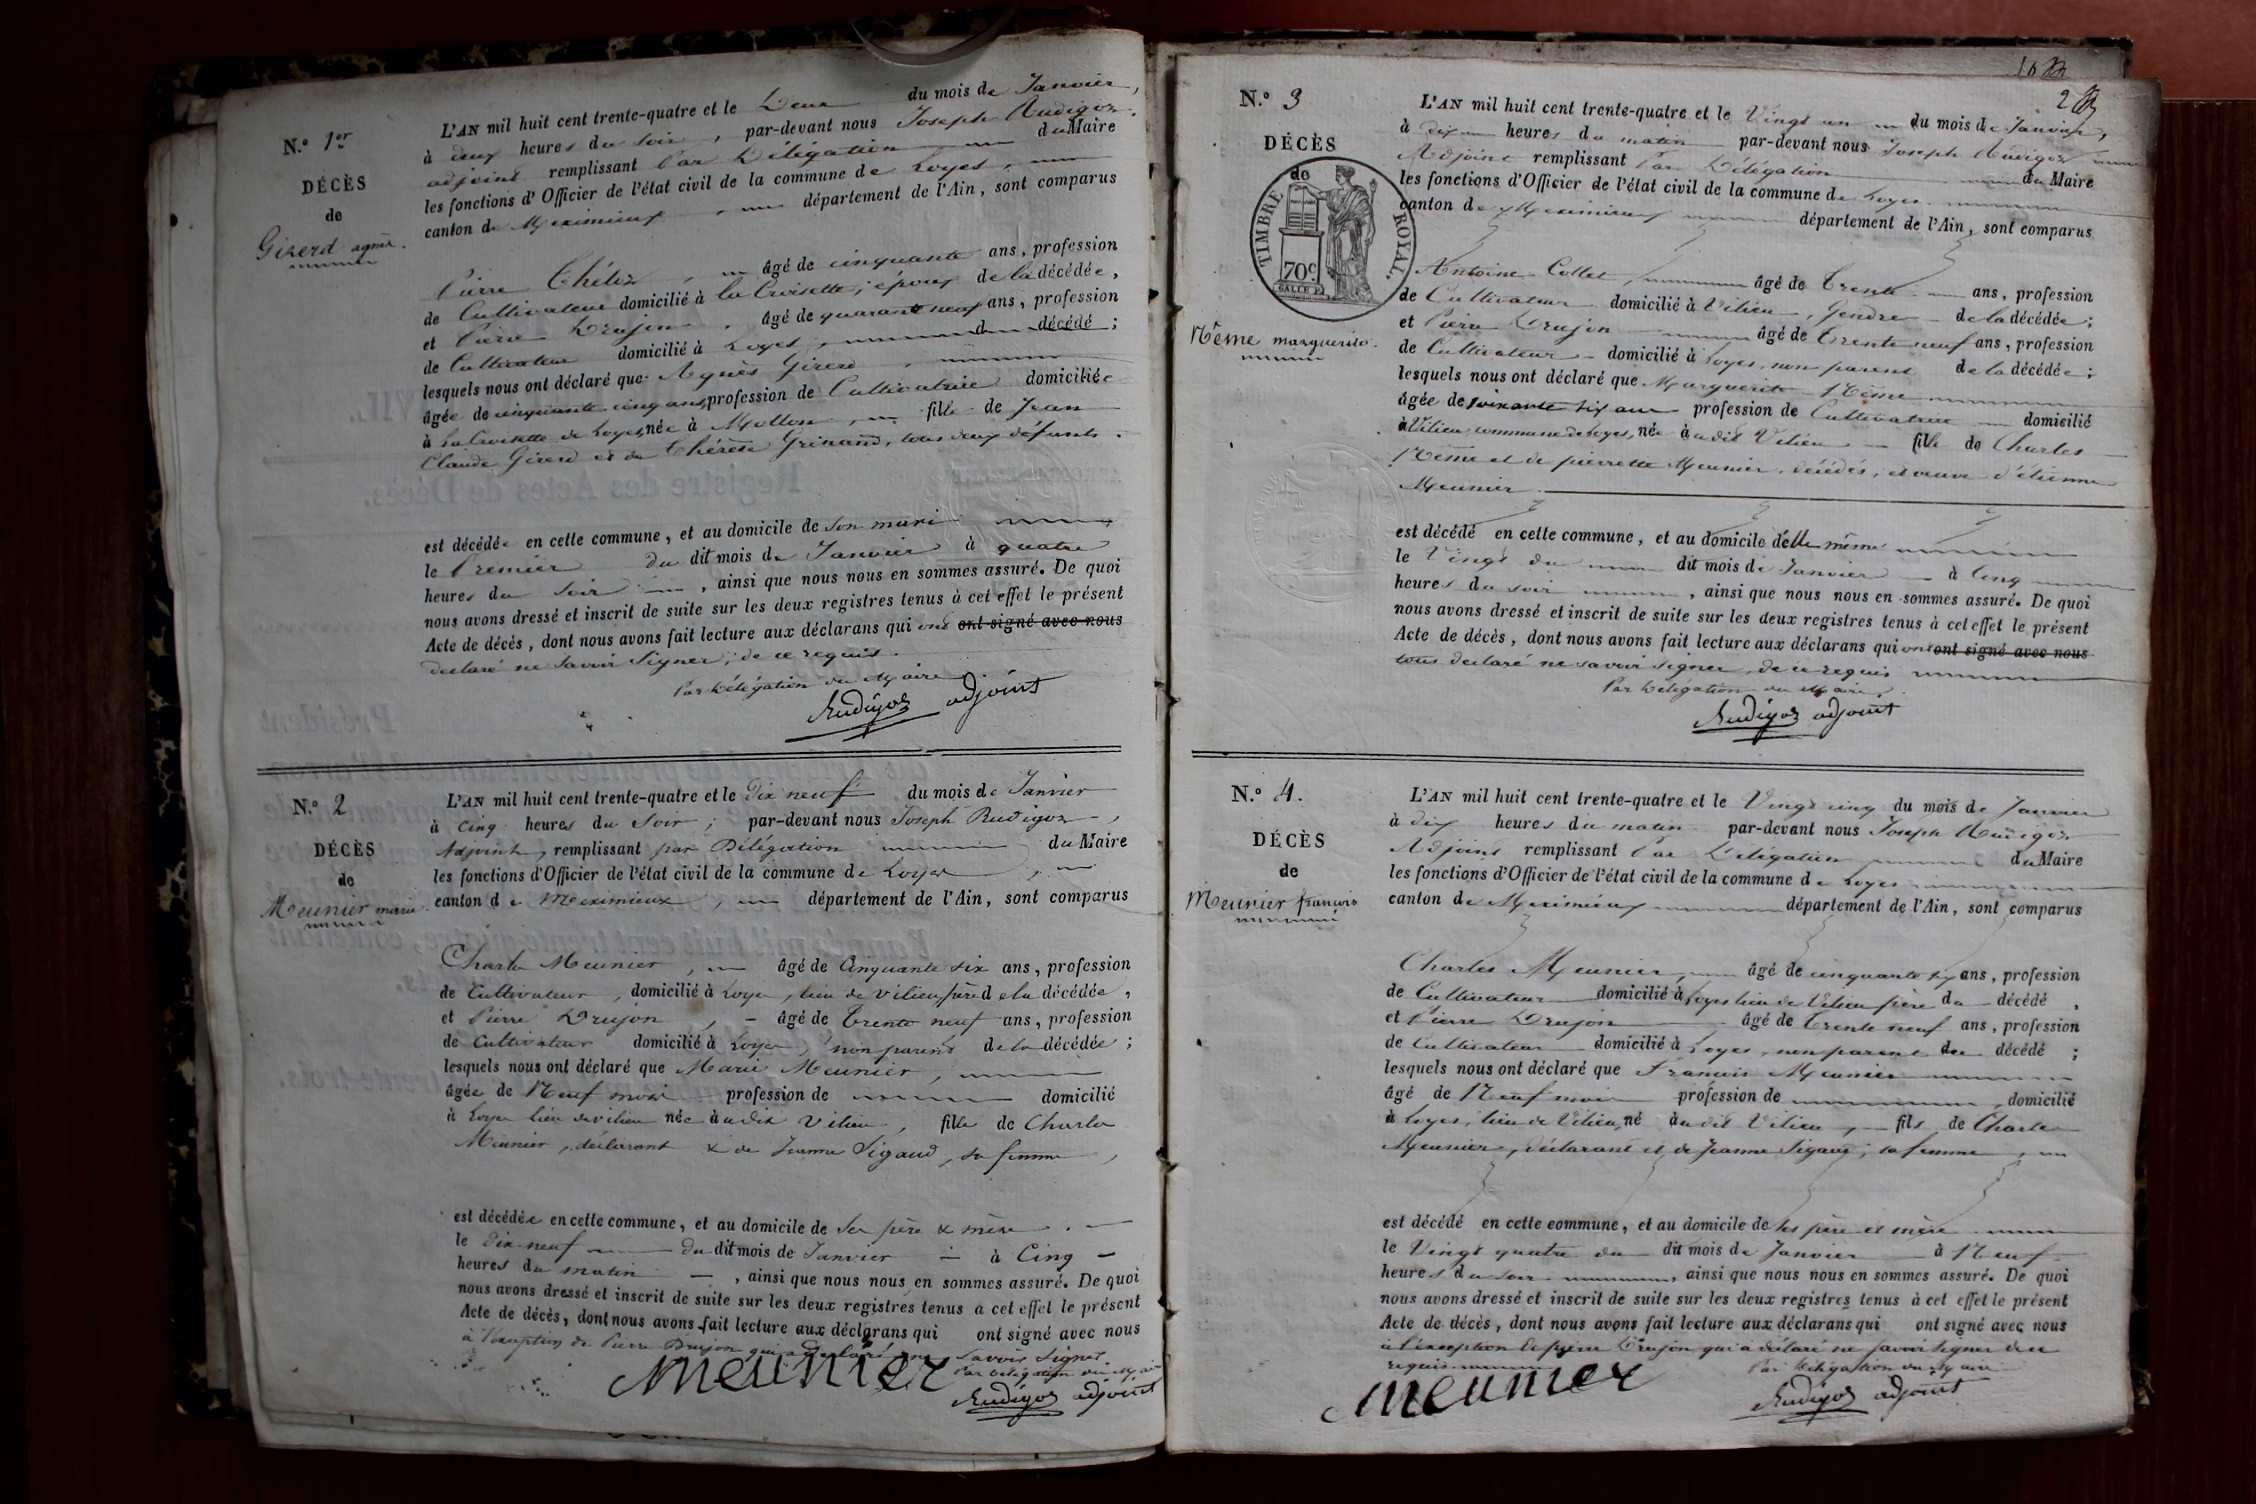 N.° 1er
DÉCÈS
de
Girerd agnès.
L'AN mil huit cent trente-quatre et le Deux du mois de Janvier,
à deux heures du soir, par-devant nous Joseph Rudigoz
adjoint remplissant Par Délégation du Maire
les fonctions d'Officier de l'état civil de la commune de Loyes,
canton de Meximieux, département de l'Ain, sont comparus
Pierre Thélix, âgé de cinquante ans, profession
de Cultivateur domicilié à la Croisette, époux de la décédée,
et Pierre Drujon, âgé de quarante neuf ans, profession
de Cultivateur domicilié à Loyes, d décédé ;
lesquels nous ont déclaré que Agnès Girerd,
âgée de cinquante cinq ans, profession de Cultivatrice domiciliée
à La Croisette de Loyes, née à Mollon, fille de Jean
Claude Girerd et de Thérèse Grinand, tous deux défunts.
est décédée en cette commune, et au domicile de son mari
le Premier du dit mois de Janvier à quatre
heures du soir, ainsi que nous nous en sommes assuré. De quoi
nous avons dressé et inscrit de suite sur les deux registres tenus à cet effet le présent
Acte de décès, dont nous avons fait lecture aux déclarans qui ont ont signé avec nous
declaré ne savoir signer, de ce requis.
Par Délégation du Maire.
Rudigoz adjoint
N.° 2
DÉCÈS
de
Meunier marie.
L'AN mil huit cent trente-quatre et le Dix neuf du mois de Janvier
à Cinq heures du Soir ; par-devant nous Joseph Rudigoz,
Adjoint, remplissant par Délégation du Maire
les fonctions d'Officier de l'état civil de la commune de Loyes,
canton de Meximieux, département de l'Ain, sont comparus
Charles Meunier, âgé de Cinquante six ans, profession
de Cultivateur, domicilié à Loyes, lieu de vilieu, père de la décédée,
et Pierre Drujon, âgé de Trente neuf ans, profession
de Cultivateur domicilié à Loyes, non parent de la décédée ;
lesquels nous ont déclaré que Marie Meunier,
âgée de Neuf mois profession de domicilié
à Loyes lieu de vilieu née audit Vilieu, fille de Charles
Meunier, déclarant & de Jeanne Sigaud, sa femme,
est décédée en cette commune, et au domicile de Ses père & mère.
le Dix-neuf du dit mois de Janvier à Cinq
heures du matin, ainsi que nous nous en sommes assuré. De quoi
nous avons dressé et inscrit de suite sur les deux registres tenus à cet effet le présent
Acte de décès, dont nous avons fait lecture aux déclarans qui ont signé avec nous
à l'exception de Pierre Drujon qui a déclaré ne savoir signer
Par délégation du Maire
Meunier
Rudigoz adjoint
2
N.° 3
DÉCÈS
de
TIMBRE ROYAL.
70c
Nême marguerite.
L'AN mil huit cent trente-quatre et le Vingt un du mois de Janvier,
à dix heures du matin par-devant nous Joseph Rudigoz
Adjoint remplissant Par Délégation du Maire
les fonctions d'Officier de l'état civil de la commune de Loyes
canton de Meximieux département de l'Ain, sont comparus
Antoine Collet, âgé de Trente ans, profession
de Cultivateur domicilié à Vilieu, Gendre de la décédée ;
et Pierre Drujon âgé de Trente neuf ans, profession
de Cultivateur domicilié à Loyes, non parent de la décédée ;
lesquels nous ont déclaré que Marguerite Nême
âgée de soixante six ans profession de Cultivatrice domicilié
à Vilieu, commune de Loyes, née audit Vilieu fille de Charles
Nême et de pierrette Meunier, décédés, et veuve d'étienne
Meunier.
est décédé en cette commune, et au domicile d'elle même
le Vingt du dit mois de Janvier à Cinq
heures du soir, ainsi que nous nous en sommes assuré. De quoi
nous avons dressé et inscrit de suite sur les deux registres tenus à cet effet le présent
Acte de décès, dont nous avons fait lecture aux déclarans qui ont ont signé avec nous
tous declaré ne savoir signer, de ce requis
Par Délégation du Maire.
Rudigoz adjoint
N.° 4.
DÉCÈS
de
Meunier françois
L'AN mil huit cent trente-quatre et le Vingt cinq du mois de Janvier
à dix heures du matin par-devant nous Joseph Rudigoz
Adjoint remplissant Par Délégation du Maire
les fonctions d'Officier de l'état civil de la commune de Loyes
canton de Meximieux département de l'Ain, sont comparus
Charles Meunier, âgé de cinquante six ans, profession
de Cultivateur domicilié à Loyes lieu de Vilieu père du décédé,
et Pierre Drujon âgé de Trente neuf ans, profession
de Cultivateur domicilié à Loyes, non parent du décédé ;
lesquels nous ont déclaré que François Meunier
âgé de Neuf mois profession de domicilié
à Loyes, lieu de Vilieu, né audit Vilieu, fils de Charles
Meunier, déclarant et de Jeanne Sigaud, sa femme,
est décédé en cette commune, et au domicile de ses père et mère
le Vingt quatre du dit mois de Janvier à Neuf
heures du soir, ainsi que nous nous en sommes assuré. De quoi
nous avons dressé et inscrit de suite sur les deux registres tenus à cet effet le présent
Acte de décès, dont nous avons fait lecture aux déclarans qui ont signé avec nous
à l'exception de pierre Drujon qui a déclaré ne savoir signer de ce
requis. Par Délégation du Maire
Meunier
Rudigoz adjoint